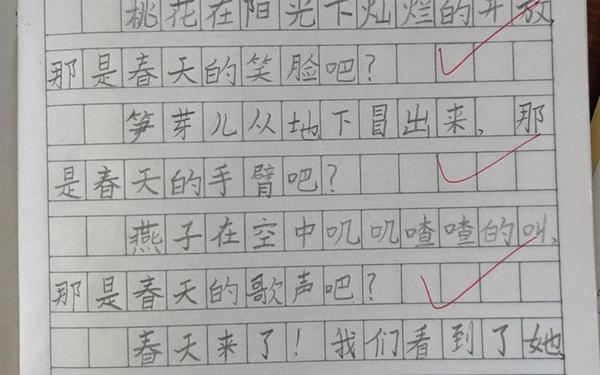 桃花在阳光下灿烂的开放,
那是春天的笑脸吧?
笋芽儿从地下冒出来,那
是春天的手臂吧?
燕子在空中叽叽喳喳的叫,
那是春天的歌声吧?
春天来了!我们看到了她